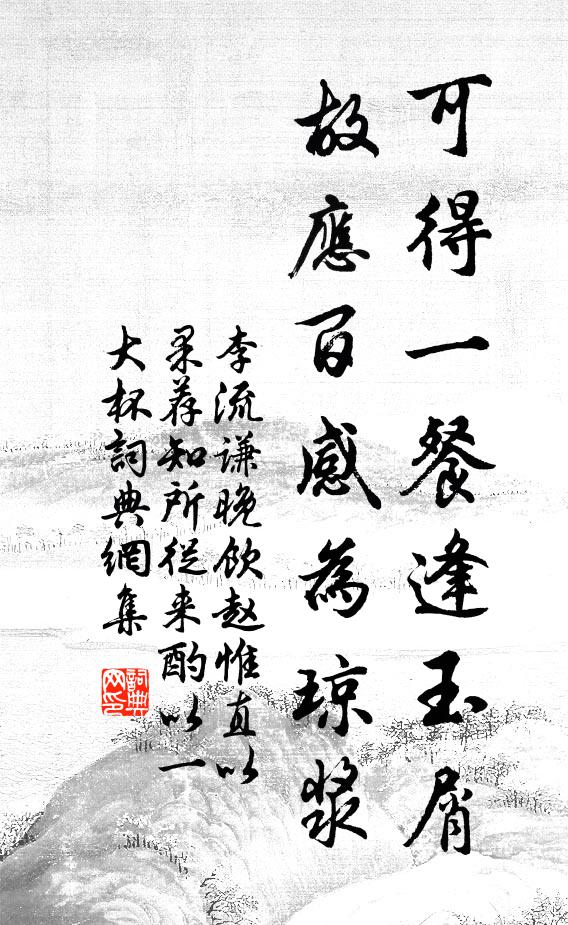 可得一餐逢玉屑
故應百感為琼漿
李流谦晚飲赵惟直以
果荐知所從来酌以一
大杯詞典網集
詞典网印